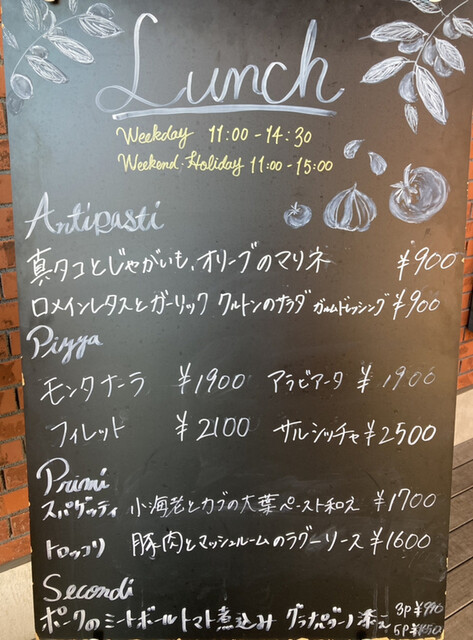 Lunch
Weekday 11:00-14:30
Weekend・Holiday 11:00-15:00
Antipasti
真タコとじゃがいも、オリーブのマリネ ¥900
ロメインレタスとガーリック クルトンのサラダ ガルムドレッシング ¥900
Pizza
モンタナーラ ¥1900 アラビアータ ¥1900
フィレット ¥2100 サルシッチャ ¥2500
Primi
スパゲッティ 小海老とカブの大葉ペースト和え ¥1700
トロッコリ 豚肉とマッシュルームのラグーソース ¥1600
Secondi
ポークのミートボールトマト煮込み グラナパダーノ添え 3P
5P